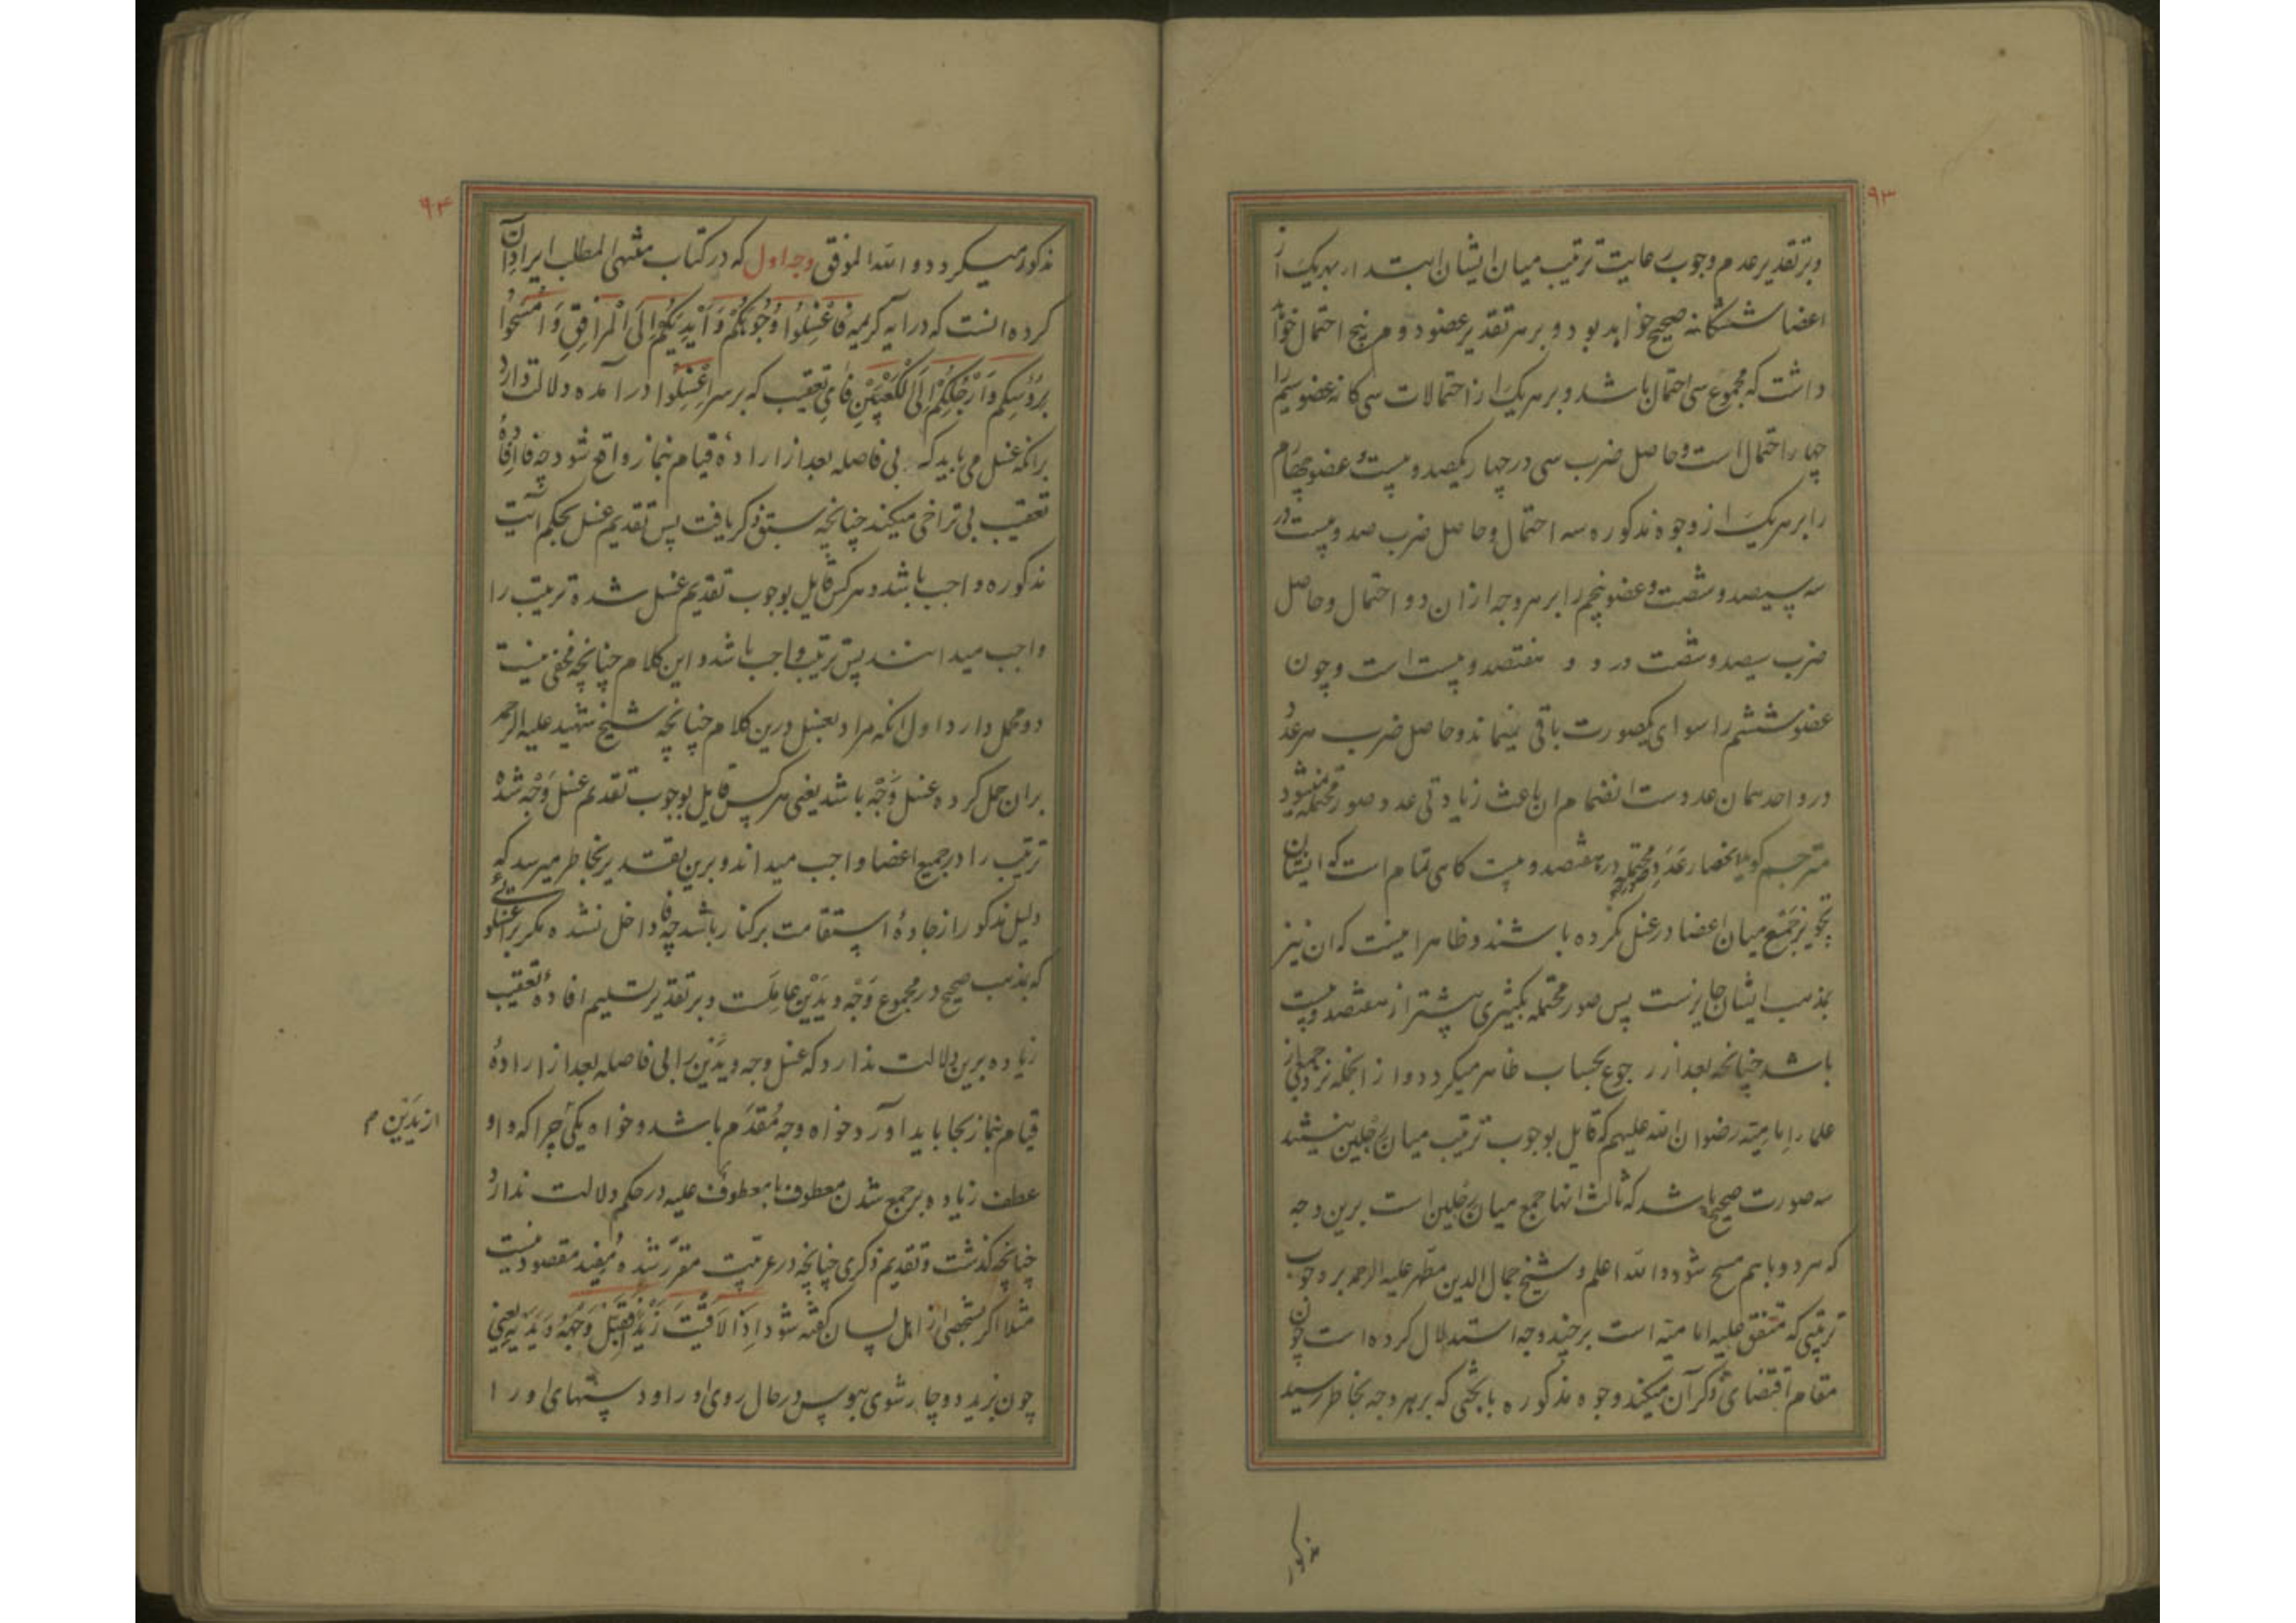 ۹۳
وبر تقدیر عدم وجوب رعایت ترتیب میان ایشان ابتدا بهر یک از
اعضاء ششکانه صحیح خواهد بود و بر هر تقدیر عضو دوم پنج احتمال خواهد
داشت که مجموع سی احتمال باشد و بر هر یک از احتمالات سی کانه عضو سیم را
چهار احتمال است و حاصل ضرب سی در چهار یکصد و بیست و عضو چهارم
را بر هر یک از وجوه مذکوره سه احتمال و حاصل ضرب صد و بیست در
سه سیصد و شصت و عضو پنجم را بر هر وجه ازان دو احتمال و حاصل
ضرب سیصد و شصت در دو هفتصد و بیست است و چون
عضو ششم را سوای یکصورت باقی نمیماند و حاصل ضرب هر عدد
در واحد همان عددست انضمام ان باعث زیادتی عدد صور محتمله نمیشود
مترجم کوید انحصار عدد صور محتمله در هفتصد و بیست کاهی تمام است که ایشان
تجویز جمع میان اعضا در غسل نکرده باشند و ظاهرا نیست که ان نیز
بمذهب ایشان جایزست پس صور محتمله بکثیری بیشتر از هفتصد و بیست
باشد چنانچه بعد از رجوع بحساب ظاهر میکردد و از انجمله نزد بعضی از
علماء امامیه رضوان الله علیهم که قایل بوجوب ترتیب میان رجلین نیستند
سه صورت صحیح باشد که ثالث انها جمع میان رجلین است برین وجه
که هر دو باهم مسح شود و الله اعلم و شیخ جمال الدین مطهر علیه الرحمه بر وجوب
ترتیبی که متفق علیه امامیه است بر چند وجه استدلال کرده است چون
مقام اقتضای ذکر آن میکند وجوه مذکوره با بحثی که بر هر وجه بخاطر رسید
مذکور
۹۴
مذکور میکردد و الله الموفق وجه اول که در کتاب منتهی المطلب ایراد آن
کرده انست که در ایه کریمه فَاغْسِلُوا وُجُوهَكُمْ وَأَيْدِيَكُمْ إِلَى الْمَرَافِقِ وَامْسَحُوا
بِرُؤُسِكُمْ وَأَرْجُلَكُمْ إِلَى الْكَعْبَيْنِ فای تعقیب که بر سر اغسلوا در آمده دلالت دارد
برانکه غسل می باید که بی فاصله بعد از اراده قیام بنماز واقع شود چه فا افاده
تعقیب بی تراخی میکند چنانچه سبق ذکر یافت پس تقدیم غسل بحکم آیت
مذکوره واجب باشد و هر کس قایل بوجوب تقدیم غسل شده ترتیب را
واجب میدانند پس ترتیب واجب باشد و این کلام چنانچه مخفی نیست
دو محمل دارد اول انکه مراد بغسل درین کلام چنانچه شیخ شهید علیه الرحمه
بران حمل کرده غسل وَجْه باشد یعنی هر کس قایل بوجوب تقدیم غسل وَجْه شده
ترتیب را در جمیع اعضا واجب میداند و برین تقدیر بخاطر میرسد که
دلیل مذکور از جادهٔ استقامت برکنار باشد چه فا داخل نشده مکر بر غسلی
که بمذهب صحیح در مجموع وَجْه و یَدَیْن عاملست و بر تقدیر تسلیم افادهٔ تعقیب
زیاده برین دلالت ندارد که غسل وجه و یدین را بی فاصله بعد از ارادهٔ
قیام بنماز بجا باید آورد خواه وجه مُقدّم باشد و خواه یکی چرا که واو
از یَدَیْن م
عطف زیاده بر جمع شدن معطوف با معطوف علیه در حکم دلالت ندارد
چنانچه کذشت و تقدیم ذکری چنانچه در عربیت مقرّر شده مُفید مقصود نیست
مثلا اکر بشخصی از اهل لسان کفته شود اِذَا لَاقَیْتَ زَیْدًا فَقَبِّلْ وَجْهَهُ وَ یَدَیْهِ یعنی
چون بزید دوچار شوی ببوس در حال روی او را و دستهای او را